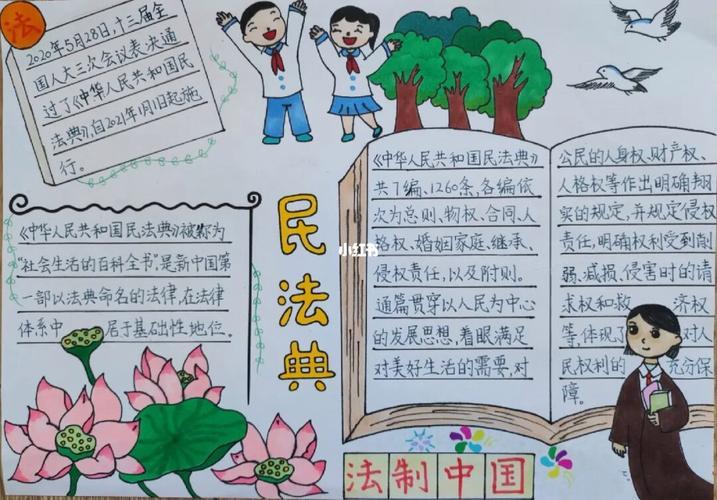 法
2020年5月28日,十三届全
国人大三次会议表决通
过了《中华人民共和国民
法典》,自2021年1月1日起施
行。
《中华人民共和国民法典》被称为
“社会生活的百科全书”,是新中国第
一部以法典命名的法律,在法律
体系中 居于基础性地位。
民法典
小红书
《中华人民共和国民法典》
共7编、1260条,各编依
次为总则、物权、合同、人
格权、婚姻家庭、继承、
侵权责任,以及附则。
通篇贯穿以人民为中心
的发展思想,着眼满足
对美好生活的需要,对
公民的人身权、财产权、
人格权等作出明确翔
实的规定,并规定侵权
责任,明确权利受到削
弱、减损、侵害时的请
求权和救 济权
等,体现 对人
民权利的 充分保
障。
法制中国